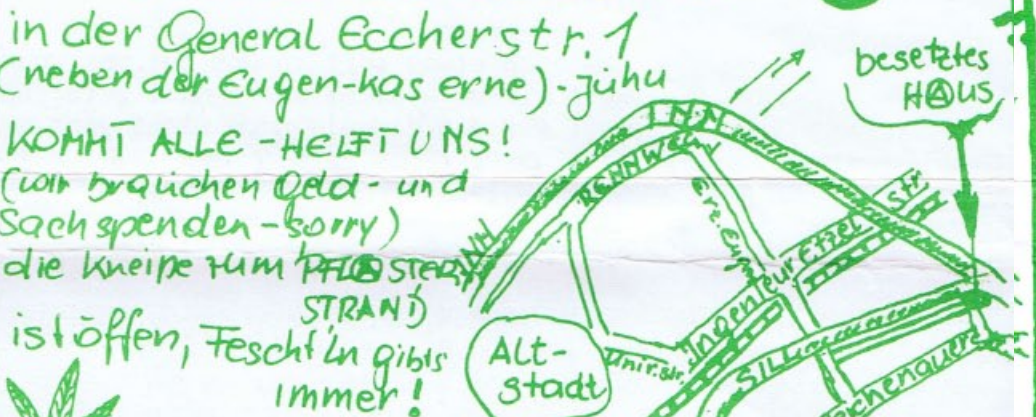 in der General Eccherstr. 1
(neben der Eugen-kaserne)-juhu
KOMMT ALLE - HELFT UNS!
(wir brauchen Geld- und
Sachspenden - sorry)
die Kneipe zum PFLASTER
STRAND
ist öffen, Fescht'ln gibts
immer!
besetztes
HAUS
INN
RENNWEG
INN
Erz. Eugen
Ingenieur Etzel Str
Univ.str.
SILL
Alt-
stadt